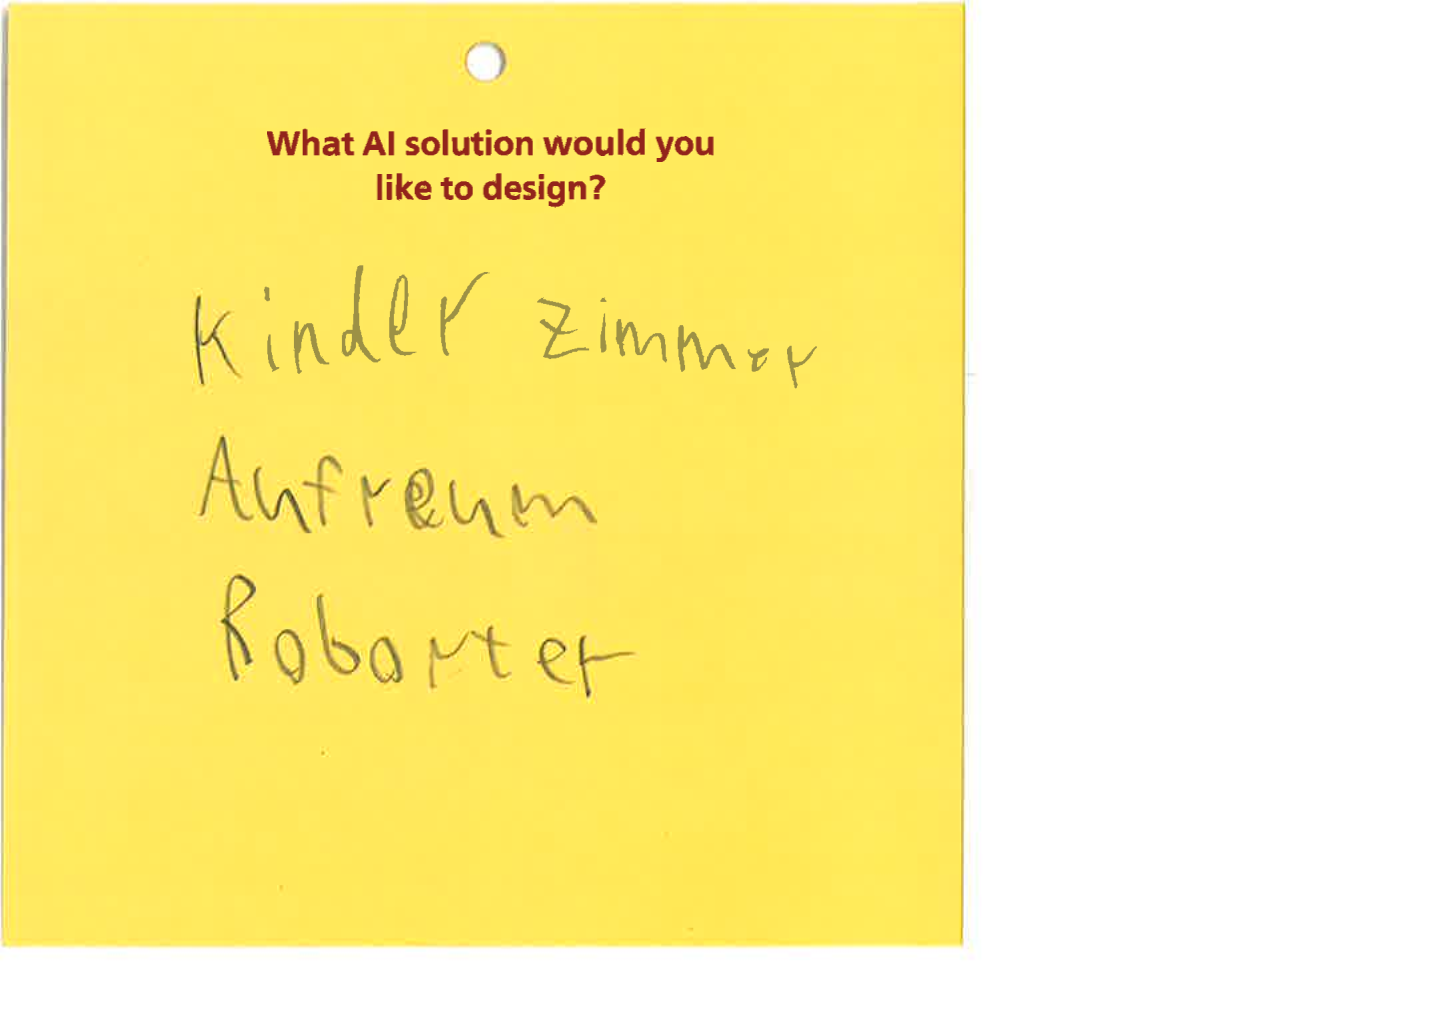 What AI solution would you
like to design?
Kinder zimmer
Aufreum
Roborter